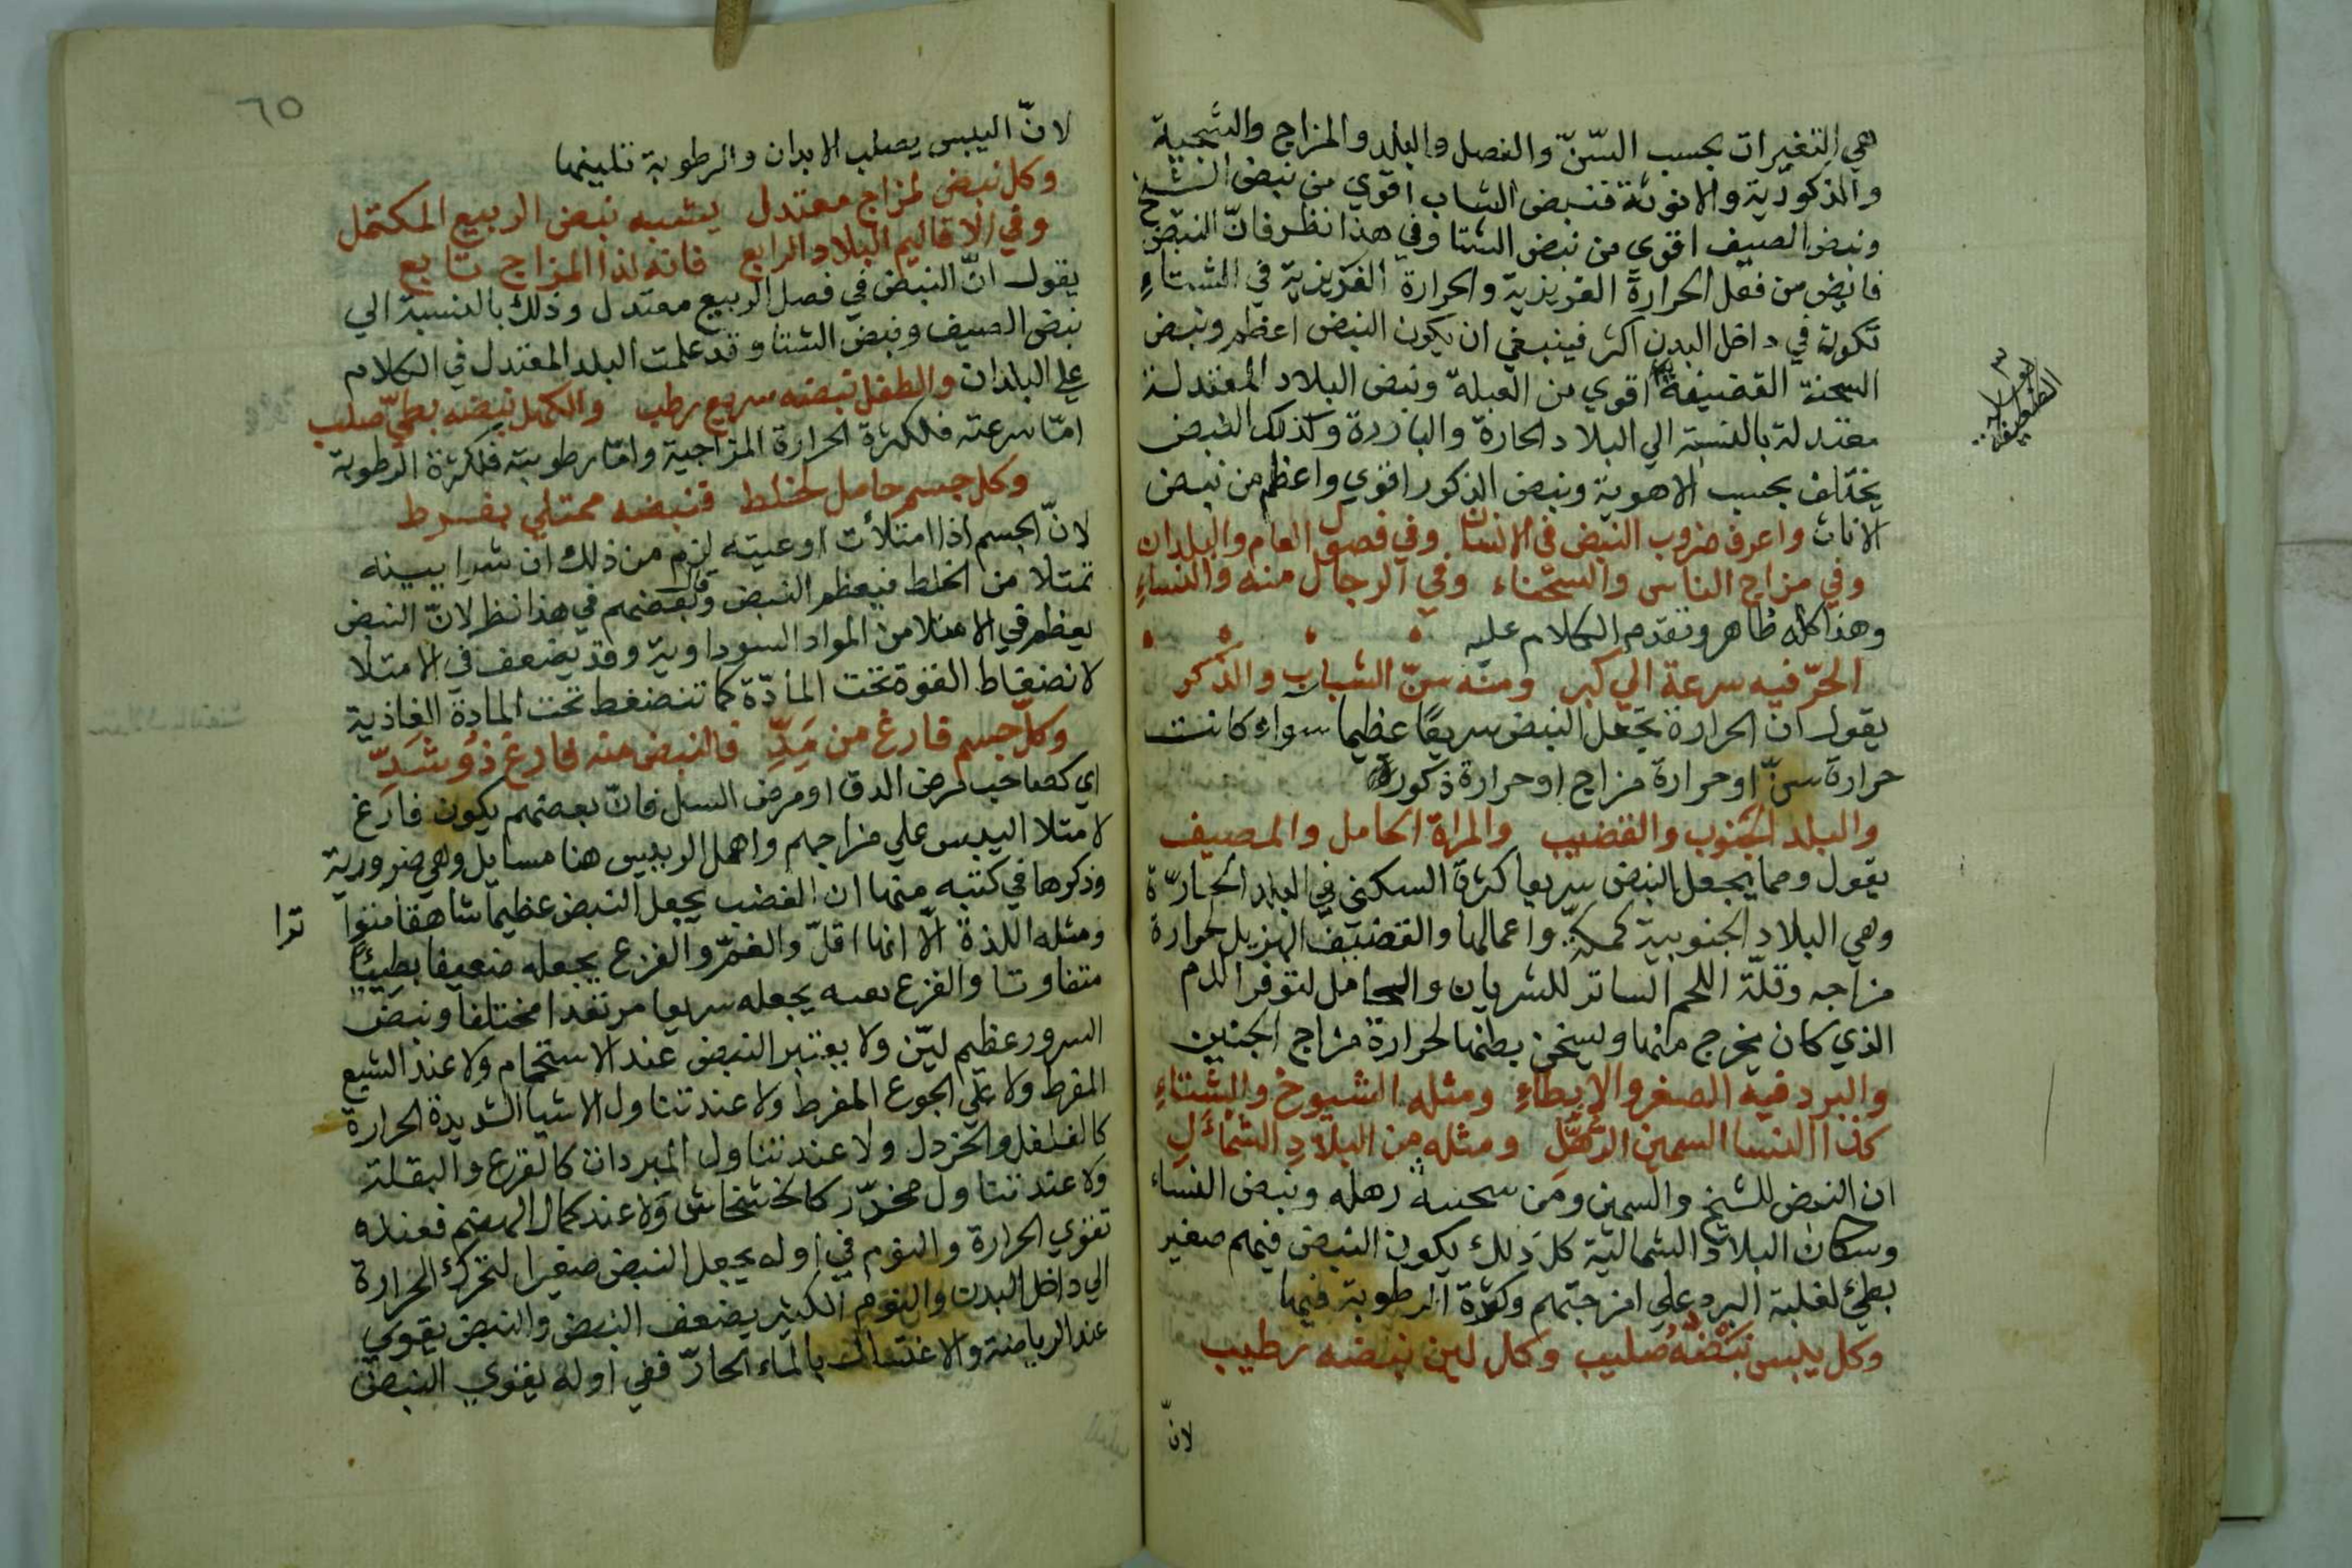 هي التغيرات بحسب السّنّ والفصل والبلد والمزاج والسحنة
والذكورية والانوثة فنبض الشاب اقوي من نبض الشيخ
ونبض الصيف اقوي من نبض الشتا وفي هذا نظر فانّ النبض
فايض من فعل الحرارة الغريزية والحرارة الغريزية في الشتاءِ
تكون في داخل البدن اكثر فينبغي ان يكون النبض اعظم ونبض
السحنة القضيفة اقوي من العبلة ونبض البلاد المعتدلة
معتدلة بالنسبة الي البلاد الحارة والباردة وكذلك النبض
يختلف بحسب الاهوية ونبض الذكور اقوي واعظم من نبض
الاناث واعرف ضروب النبض في الانسان وفي فصول العام والبلدان
وفي مزاج الناس والسحناء وفي الرجال منه والنساءِ
وهذا كله ظاهر وتقدم الكلام عليه
الحرّ فيه سرعة الي كبر ومنه سنّ الشباب والذكر
يقول ان الحرارة تجعل النبض سريعًا عظيما سواء كانت
حرارة سنّ او حرارة مزاج او حرارة ذكورة
والبلد الجنوب والقضيب والمراة الحامل والمصيف
يقول ومما يجعل النبض سريعا كثرة السكني في البلد الحارّة
وهي البلاد الجنوبية كمكّة واعمالها والقضيف الهزيل لحرارة
مزاجه وقلّة اللحم الساتر للشريان والحامل لتوفر الدم
الذي كان يخرج منها وليسخن بطنها لحرارة مزاج الجنين
والبرد فيه الصغر والابطاءِ ومثله الشيوخ والشتاءِ
كذا النسا السمين الرّهَّلِ ومثله من البلادِ الشمأَلِ
ان النبض للشيخ والسمين ومن سحنته رهله ونبض النساء
وسكان البلاد الشمالية كل ذلك يكون النبض فيهم صغير
بطئ لغلبة البرد علي امزجتهم وكثرة الرطوبة فيها
وكل يابس نبَضُهُ صُليب وكل لين نبضه رطيب
لانّ
٦٥
لانّ اليبس يصلب الابدان والرطوبة تلينها
وكل نبض لمزاج معتدل يشبه نبض الربيع المكتمل
وفي الاقاليم البلاد الرابع فانه لذا المزاج تابع
يقول انّ النبض في فصل الربيع معتدل وذلك بالنسبة الي
نبض الصيف ونبض الشتا وقد علمت البلد المعتدل في الكلام
علي البلدان والطفل نبضه سريع رطب والكهل نبضه بطيّ صلب
امّا سرعته فلكثرة الحرارة المزاجية وامّا رطوبته فلكثرة الرطوبة
وكل جسم حامل لخلط فنبضه ممتلي بفرط
لانّ الجسم اذا امتلأت اوعيته لزم من ذلك ان شرايينه
تمتلا من الخلط فيعظم النبض ولبعضهم في هذا نظر لانّ النبض
يعظم في الامتلا من المواد السوداوية وقد يضعف في الامتلا
لانضغاط القوة تحت المادّة كما تنضغط تحت المادة الغاذية
وكلّ جسم فارغ من مَدِّ فالنبض منه فارغ ذو شَدِّ
اي كصاحب مرض الدق او مرض السل فانّ بعضهم يكون فارغ
لامتلا اليبس علي مزاجهم واهمل الرييس هنا مسايل وهي ضرورية
وذكرها في كتبه منها ان الغضب يجعل النبض عظيمًا شاهقا متوا
ترا
ومثله اللذة الّا انها اقلّ والغمّ والفزع يجعله ضعيفا بطيئًا
متفاوتا والفزع بغتة يجعله سريعا مرتعدا مختلفا ونبض
السرور عظيم ليّن ولا يعتبر النبض عند الاستحمام ولا عند الشبع
المفرط ولا علي الجوع المفرط ولا عند تناول الاشيا الشديدة الحرارة
كالفلفل والخردل ولا عند تناول المبردات كالقرع والبقلة
ولا عند تناول مخدّر كالخشخاش ولا عند كمال الهضم فعنده
تقوي الحرارة والنوم في اوله يجعل النبض صغيرا لتحرك الحرارة
الي داخل البدن والنوم الكثير يضعف النبض والنبض يقوي
عند الرياضة والاغتسال بالماء الحارّ ففي اوله يقوي النبض